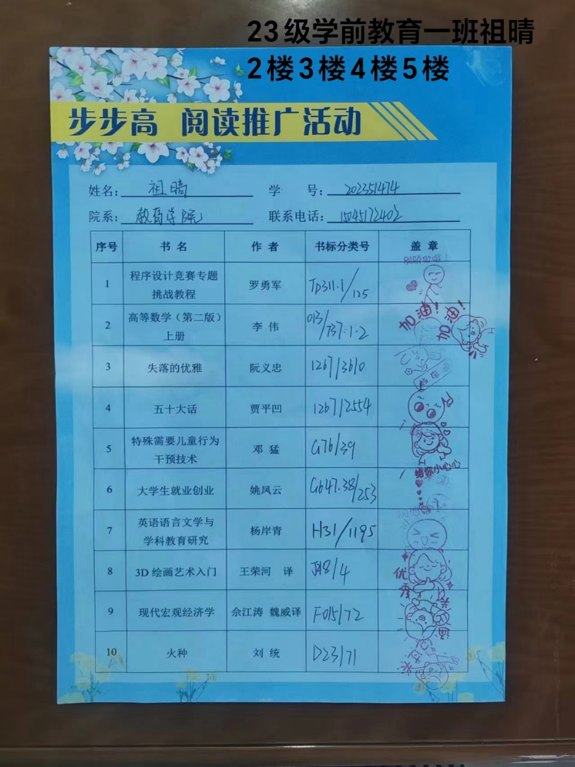 23级学前教育一班祖晴
2楼3楼4楼5楼
步步高 阅读推广活动
姓名: 祖晴 学 号: 202351474
院系: 教育学院 联系电话: 15045172402
序号 书 名 作 者 书标分类号 盖 章
1 程序设计竞赛专题挑战教程 罗勇军 TP311.1/125
加油! 加油!
2 高等数学(第二版)上册 李 伟 013/737.1-2
3 失落的优雅 阮义忠 I267/3610
4 五十大话 贾平凹 I267/2554
5 特殊需要儿童行为干预技术 邓 猛 G76/39
给你小心心
6 大学生就业创业 姚凤云 G647.38/253
7 英语语言文学与学科教育研究 杨岸青 H31/1195
8 3D 绘画艺术入门 王荣河 译 J218/4
优秀
9 现代宏观经济学 佘江涛 魏威译 F015/72
10 火种 刘 统 D23/71